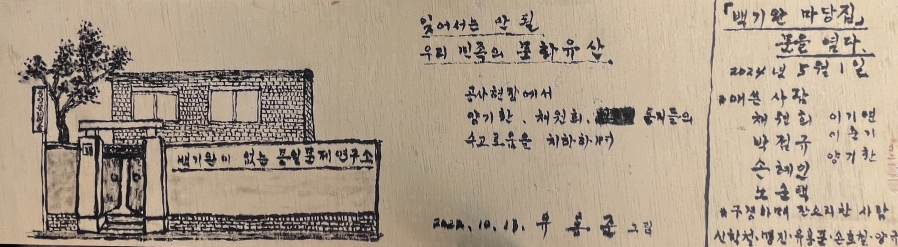 백기완이 없는 통일문제연구소
잊어서는 안 될
우리 민족의 문화유산.
공사현장에서
양기환, 채원희, 동지들의
수고로움을 치하하며
유홍준 그림
「백기완 마당집」
문을 열다.
2024년 5월 1일
*애쓴 사람
채원희 이기연
박점규 이춘기
손혜인 양기환
노순택
*구경하며 잔소리한 사람
신학철·명진·유홍준·손호철·양규